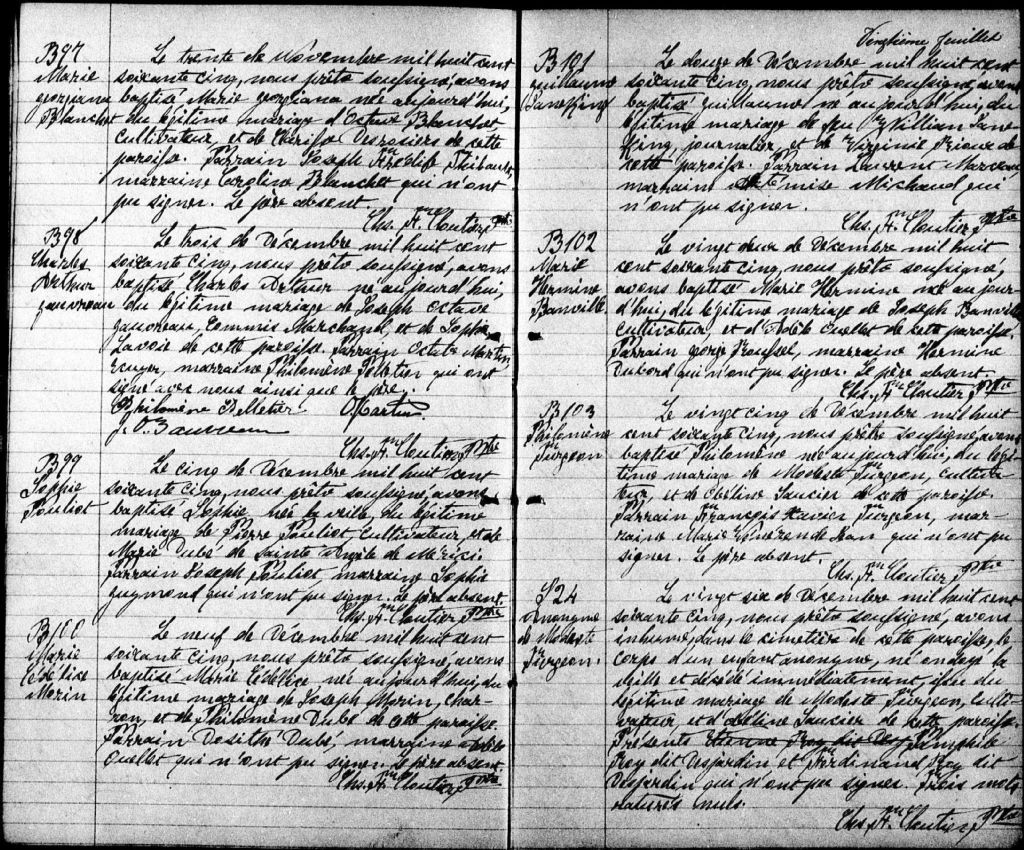 B97
Marie
georgiana
Blanchet
Le trente de Novembre mil huit cent
soixante cinq, nous prêtre soussigné, avons
baptisé Marie georgiana née aujourd'hui,
du légitime mariage d'Octave Blanchet
cultivateur, et de Desrosiers de cette
paroisse. Parrain Joseph Thibault,
marraine Caroline Blanchet qui n'ont
pu signer. Le père absent.
Chs. A. Cloutier Ptre
B98
Charles
Arthur
gauvreau
Le trois de Décembre mil huit cent
soixante cinq, nous prêtre soussigné, avons
baptisé Charles Arthur né aujourd'hui,
du légitime mariage de Joseph Octave
gauvreau, Commis Marchand, et de Sophie
Lavoie de cette paroisse. Parrain Octave Martin
marraine Philomène Pelletier qui ont
signé avec nous ainsi que le père.
Philomène Pelletier O. Martin
J. O. Gauvreau
Chs. A. Cloutier Ptre
B99
Sophie
Pouliot
Le cinq de Décembre mil huit cent
soixante cinq, nous prêtre soussigné, avons
baptisé Sophie, née la veille du légitime
mariage de Pierre Pouliot, cultivateur, et de
Marie Dubé de Sainte Angèle de Mérici.
Parrain Joseph Pouliot, marraine Sophie
guymond qui n'ont pu signer. Le père absent.
Chs. A. Cloutier Ptre
B100
Marie
Morin
Le neuf de Décembre mil huit cent
soixante cinq, nous prêtre soussigné, avons
baptisé Marie née aujourd'hui, du
légitime mariage de Joseph Morin, Char-
ron, et de Philomène Dubé de cette paroisse.
Parrain Dubé, marraine
Ouellet qui n'ont pu signer. Le père absent.
Chs. A. Cloutier Ptre
Vingtième feuillet
B101
guillaume
Lane King
Le douze de Décembre mil huit cent
soixante cinq, nous prêtre soussigné, avons
baptisé guillaume né aujourd'hui, du
légitime mariage de feu William Lane
King, journalier, et de Virginie de
cette paroisse. Parrain Laurent Marceau
marraine Michaud qui
n'ont pu signer.
Chs. A. Cloutier Ptre
B102
Marie
Hermine
Banville
Le vingt deux de Décembre mil huit
cent soixante cinq, nous prêtre soussigné,
avons baptisé Marie Hermine née aujour
d'hui, du légitime mariage de Joseph Banville
cultivateur et d'Adèle Ouellet de cette paroisse.
Parrain george Roussel, marraine Hermine
Dubord qui n'ont pu signer. Le père absent.
Chs. A. Cloutier Ptre
B103
Philomène
Turgeon
Le vingt cinq de Décembre mil huit
cent soixante cinq, nous prêtre soussigné, avons
baptisé Philomène née aujourd'hui, du légi-
time mariage de Modeste Turgeon, cultiva-
teur, et de Saucier de cette paroisse.
Parrain François Xavier Turgeon, mar-
raine Marie qui n'ont pu
signer. Le père absent.
Chs. A. Cloutier Ptre
S24
Anonyme
de Modeste
Turgeon.
Le vingt six de Décembre mil huit cent
soixante cinq, nous prêtre soussigné, avons
inhumé, dans le cimetière de cette paroisse, le
corps d'un enfant anonyme, né ondoyé la
veille et décédé immédiatement, issu du
légitime mariage de Modeste Turgeon, culti-
vateur, et Saucier de cette paroisse.
Présents Etienne Roy dit Desj Pamphile
Roy dit Desjardin et Ferdinand Roy dit
Desjardin qui n'ont pu signer. Trois mots
raturés nuls.
Chs. A. Cloutier Ptre